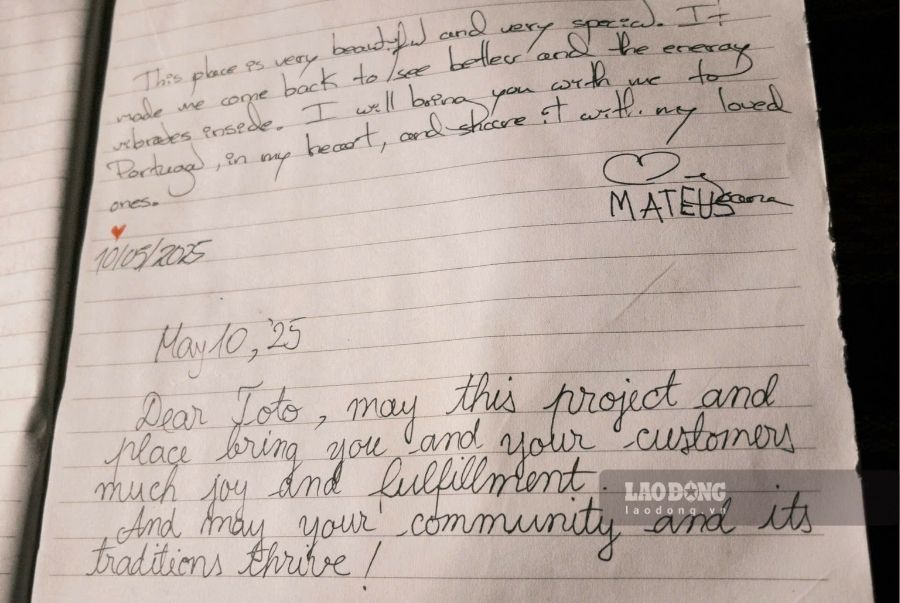 This place is very beautiful and very special. It
made me come back to see better and the energy
vibrates inside. I will bring you with me to
Portugal, in my heart, and share it with my loved
ones.
MATEUS
10/05/2025
May 10, '25
Dear Toto, may this project and
place bring you and your customers
much joy and fulfillment.
And may your community and its
traditions thrive!
LAO ĐỘNG
laodong.vn